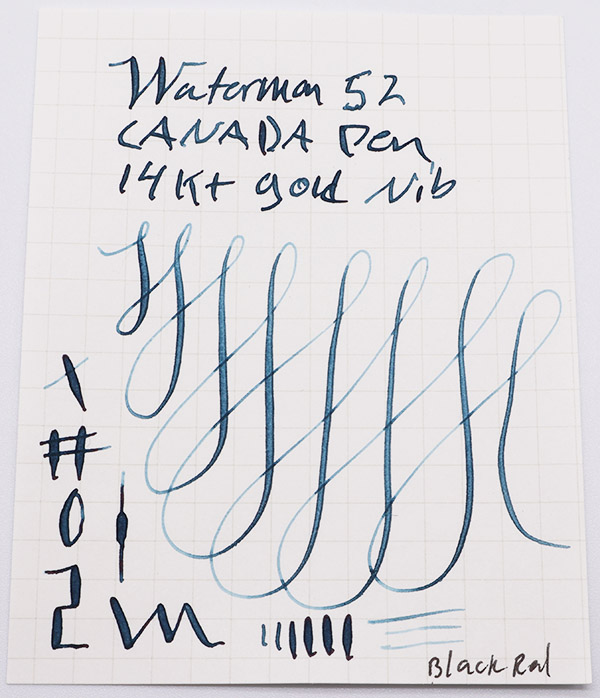 Waterman 52
CANADA Pen
14Kt gold Nib
X
#
0
2 m
Black Red